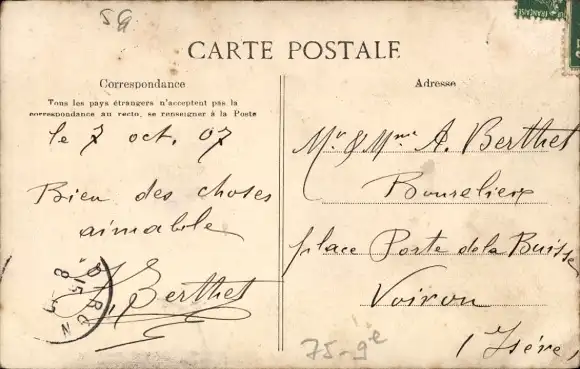 5G
CARTE POSTALE
Correspondance
Tous les pays étrangers n'acceptent pas la
correspondance au recto, se renseigner à la Poste
le 7 oct. 07
Bien des choses
aimable
A. Berthet
Adresse
Mr & Mme A. Berthet
Bourelier
place Porte de la Buisse
Voiron
(Isère)
75-9e